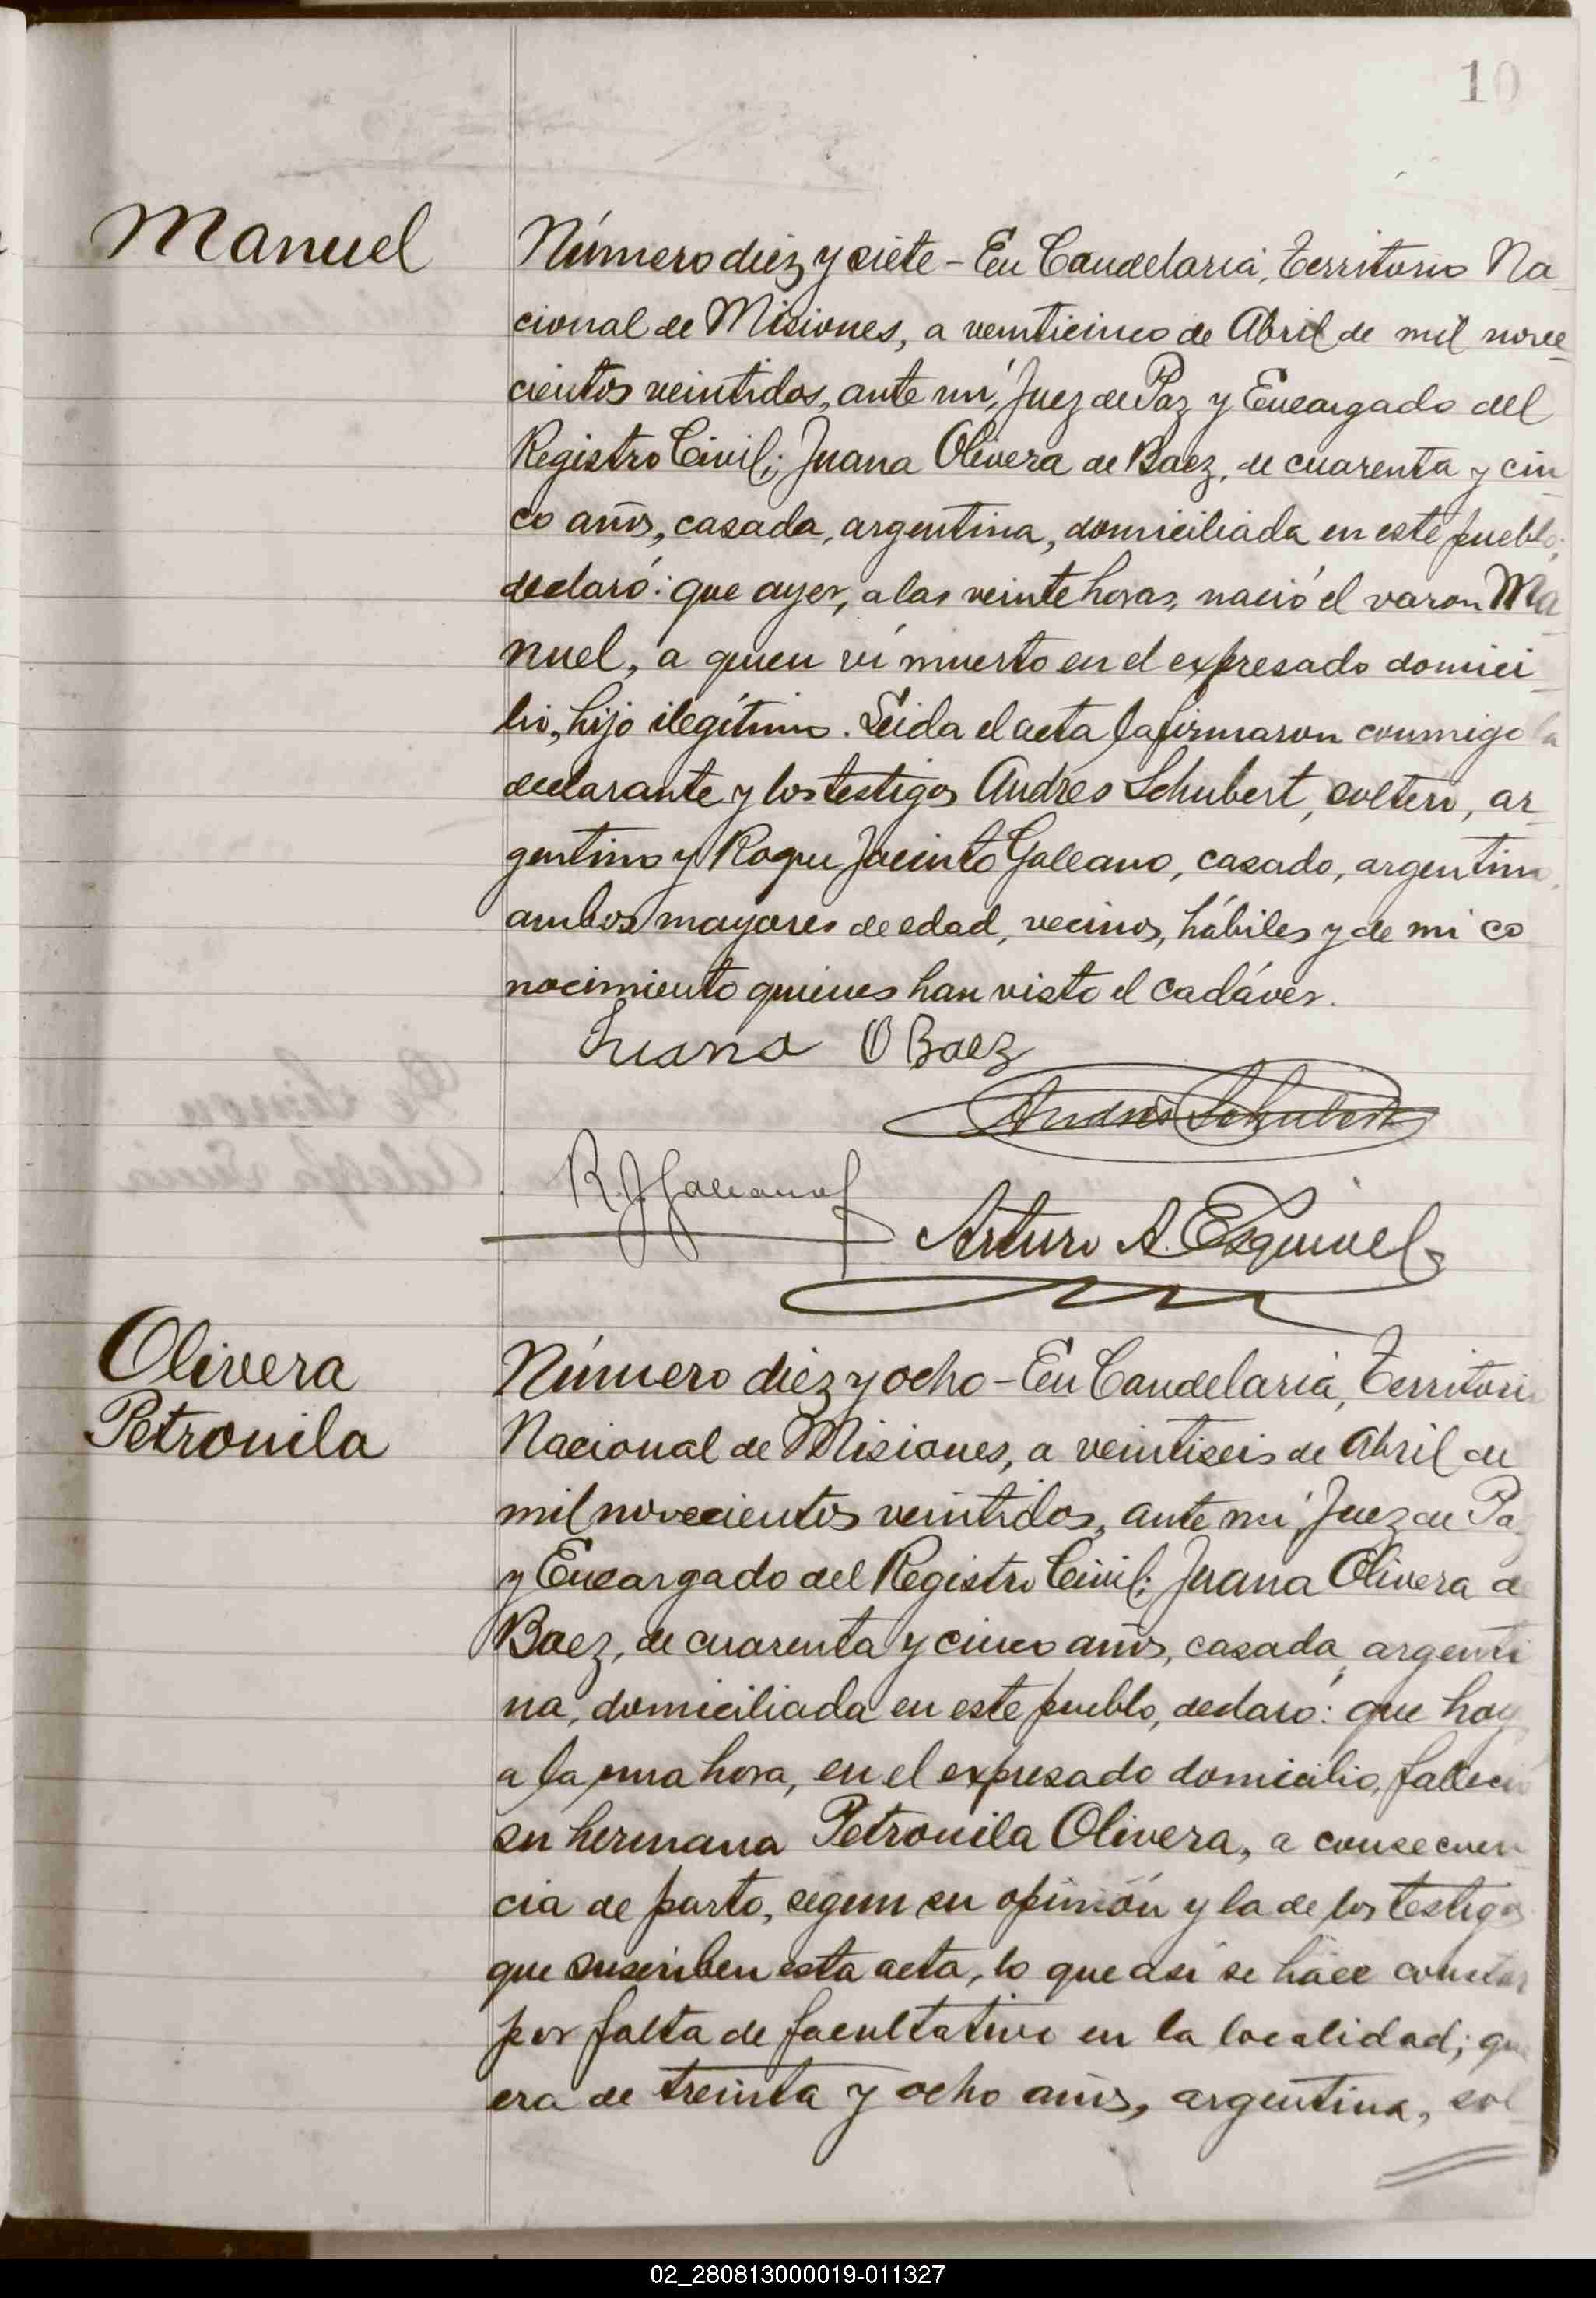 10
Manuel
Número diez y siete - En Candelaria, Territorio Na
cional de Misiones, a veinticinco de Abril de mil nove
cientos veintidos, ante mí, Juez de Paz y Encargado del
Registro Civil; Juana Olivera de Baez, de cuarenta y cin
co años, casada, argentina, domiciliada en este pueblo,
declaró: que ayer, a las veinte horas, nació el varon Ma
nuel, a quien ví muerto en el expresado domici
lio, hijo ilegítimo. Leida el acta la firmaron conmigo la
declarante y los testigos Andres Schubert, soltero, ar
gentino y Roque Jacinto Galeano, casado, argentino,
ambos mayores de edad, vecinos, hábiles y de mi co
nocimiento quienes han visto el cadáver.
Juana O Baez
Andres Schubert
R. J. Galeano
Arturo A. Esquivel
Olivera
Petronila
Número diez y ocho - En Candelaria, Territorio
Nacional de Misiones, a veintiseis de Abril de
mil novecientos veintidos, ante mí, Juez de Pa
y Encargado del Registro Civil; Juana Olivera de
Baez, de cuarenta y cinco años, casada, argenti
na, domiciliada en este pueblo, declaró: que hoy
a la una hora, en el expresado domicilio, falleció
su hermana Petronila Olivera, a consecuen
cia de parto, segun su opinión y la de los testigos
que suscriben esta acta, lo que así se hace constar
por falta de facultativo en la localidad; que
era de treinta y ocho años, argentina, sol
02_280813000019-011327